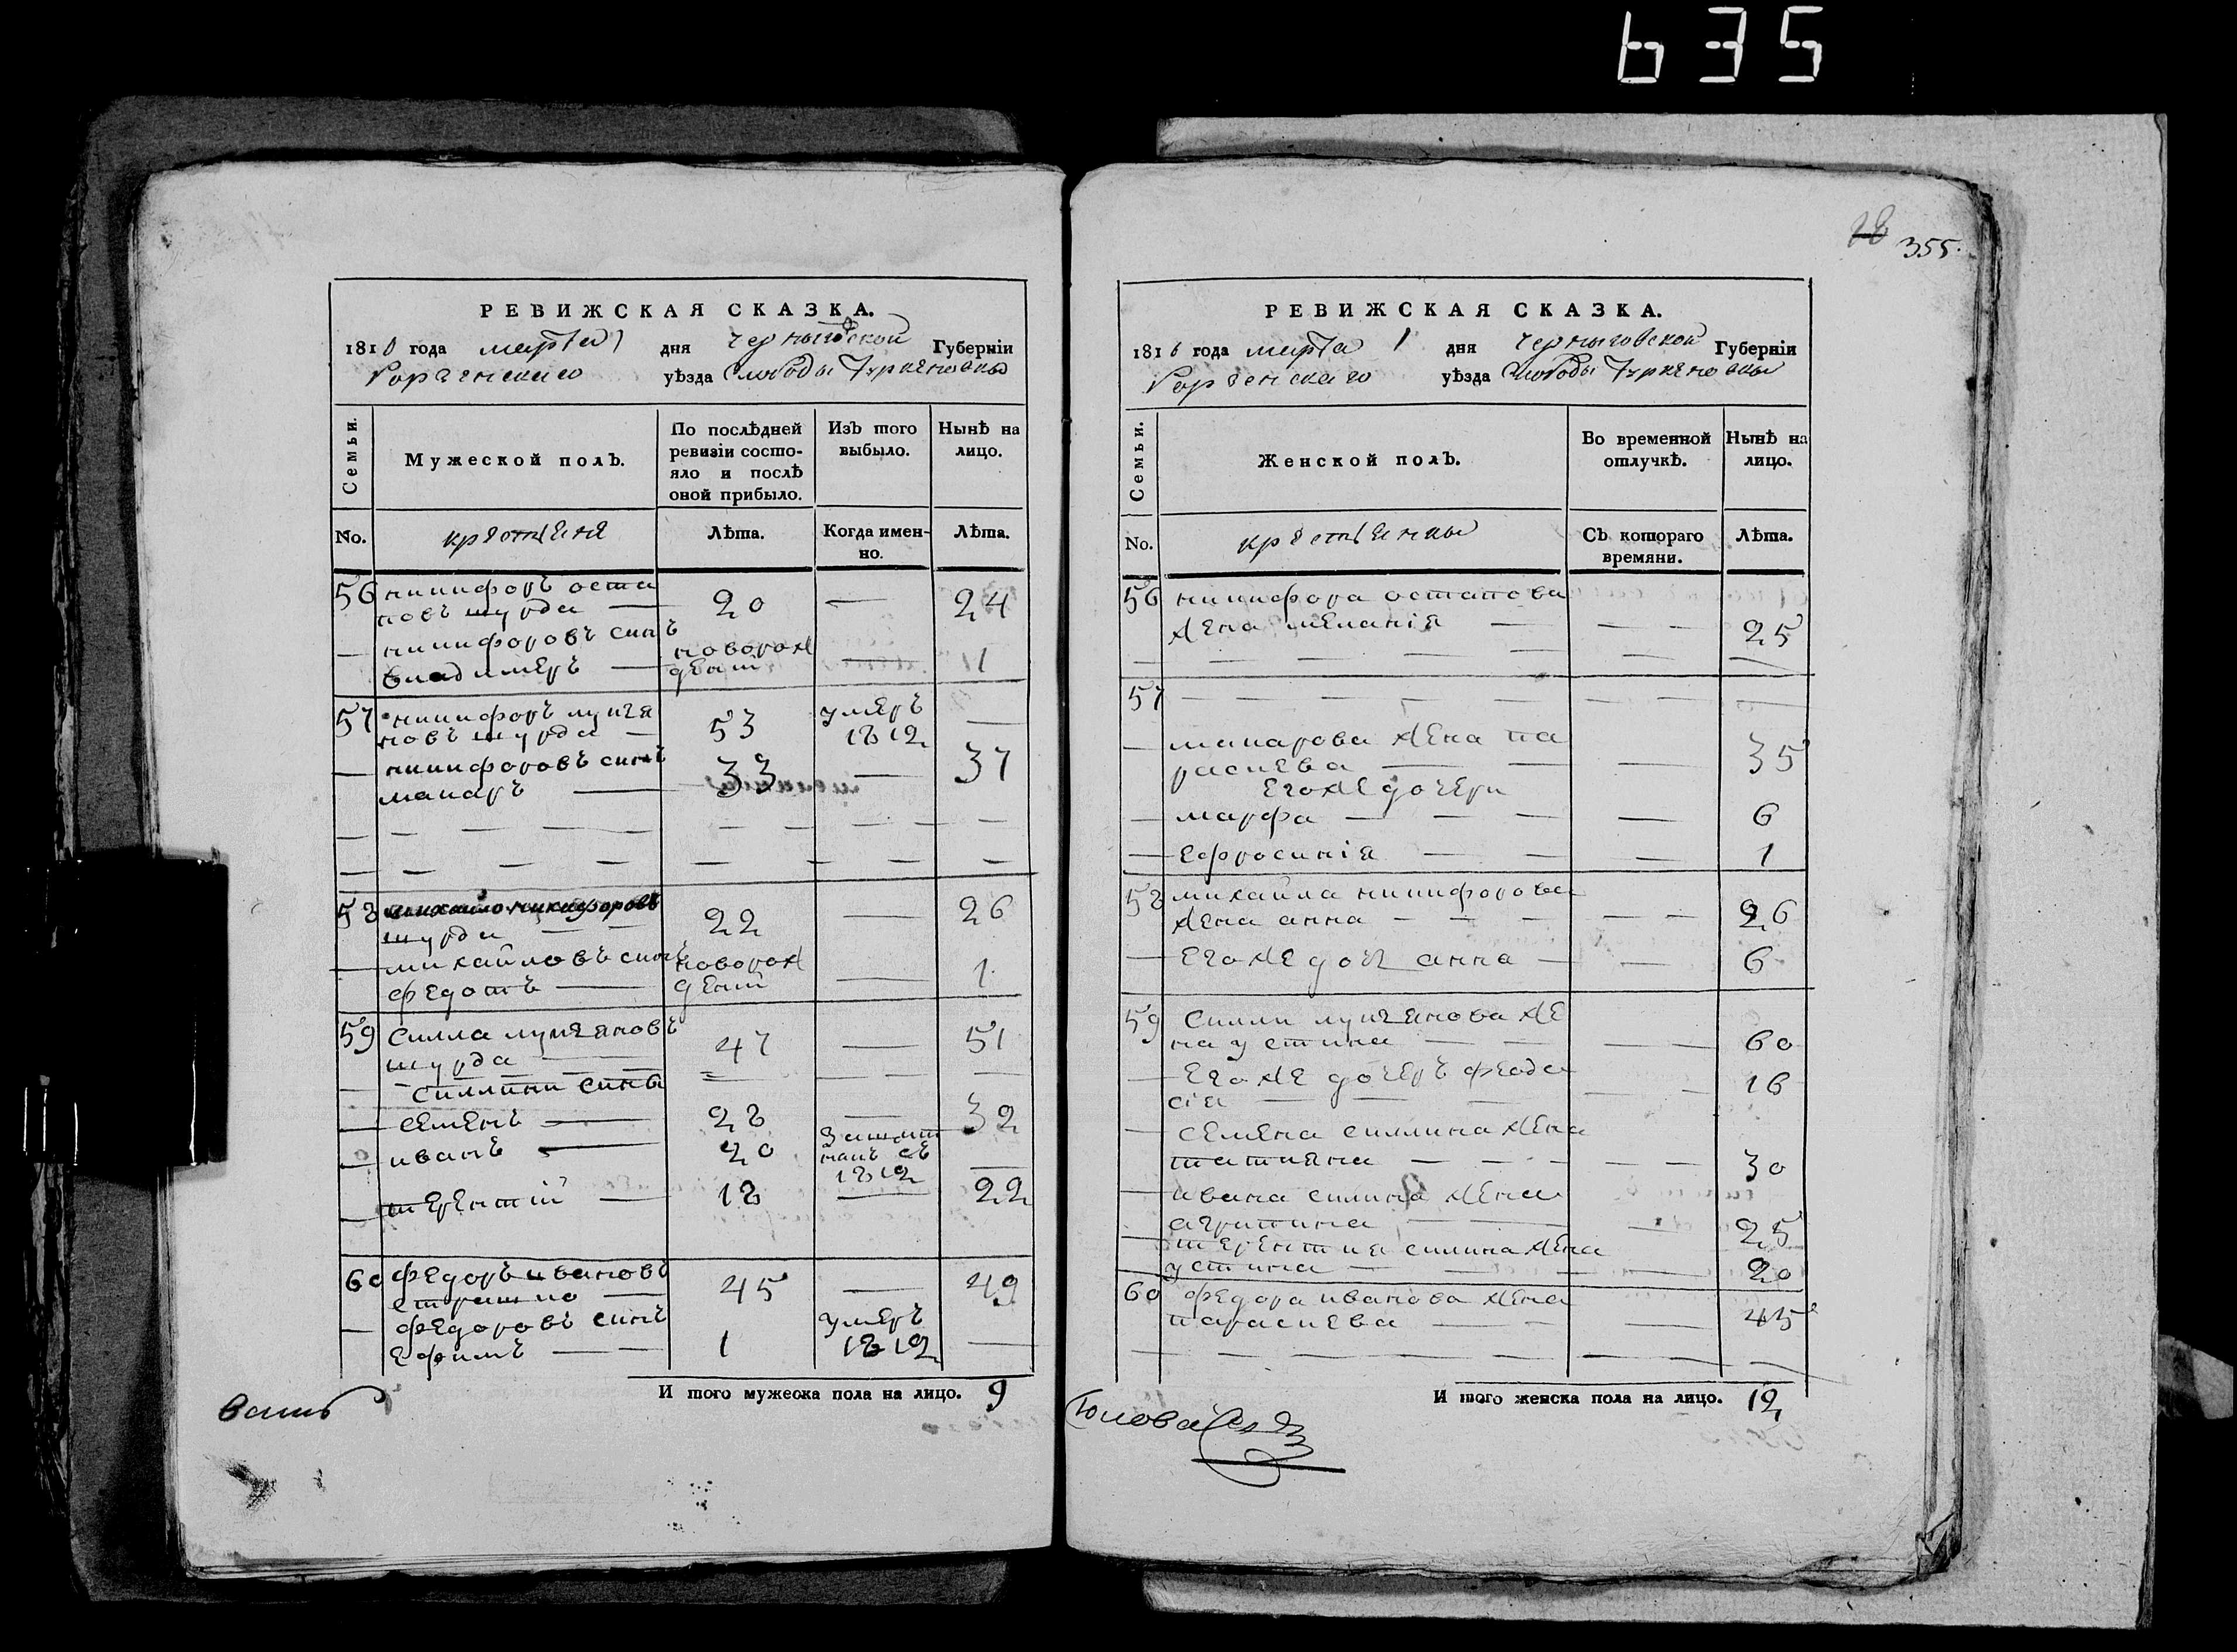 635
28 355.
РЕВИЖСКАЯ СКАЗКА.
1816 года марта 1 дня черниговской Губерніи
уѣзда слободы
Семьи.
Мужеской полъ.
По послѣдней ревизіи состо-
яло и послѣ
оной прибыло.
Изъ того выбыло.
Нынѣ на лицо.
No.
крестьяне
Лѣта.
Когда имен-
но.
Лѣта.
56 никифоръ оста
повъ шурда — 20 — 24
— никифоровъ синъ новорож
владимеръ — дени — 1
57 никифоръ лукя умеръ
новъ шурда — 53 1812 —
— никифоровъ синъ
макаръ — 33 — 37
58 михайло никифоровъ
шурда — 22 — 26
— михайловъ синъ новорож
федотъ — дени — 1
59 силла лукяновъ
шурда — 47 — 51
— силлини сины
— семенъ — 28 — 32
— иванъ — 20 1812 —
— терентій — 18 — 22
60 федоръ ивановъ
страшко — 45 — 49
— федоровъ синъ умеръ
ефимъ — 1 1812 —
И того мужеска пола на лицо. 9
РЕВИЖСКАЯ СКАЗКА.
1816 года марта 1 дня черниговской Губерніи
уѣзда слободы
Семьи.
Женской полъ.
Во временной
отлучкѣ.
Нынѣ на
лицо.
No.
крестьянки
Съ котораго
времяни.
Лѣта.
56 никифора остапова
жена меланія — — — 25
57 — — — — —
— макарова жена па
раскева — — — 35
его же дочери
— марфа — — — — 6
— ефросинія — — — 1
58 михайла никифорова
жена анна — — — — — 26
— его же дочь анна — — 6
59 силли лукянова же
на устина — — — — 60
— его же дочеръ феодо
сія — — — — — 16
— семена силлина жена
татияна — — — — — 30
— ивана силина жена
агрипина — — — 25
— терентия силина жена
устина — — — — 20
60 федора иванова жена
параскева — — — 45
И того женска пола на лицо. 12